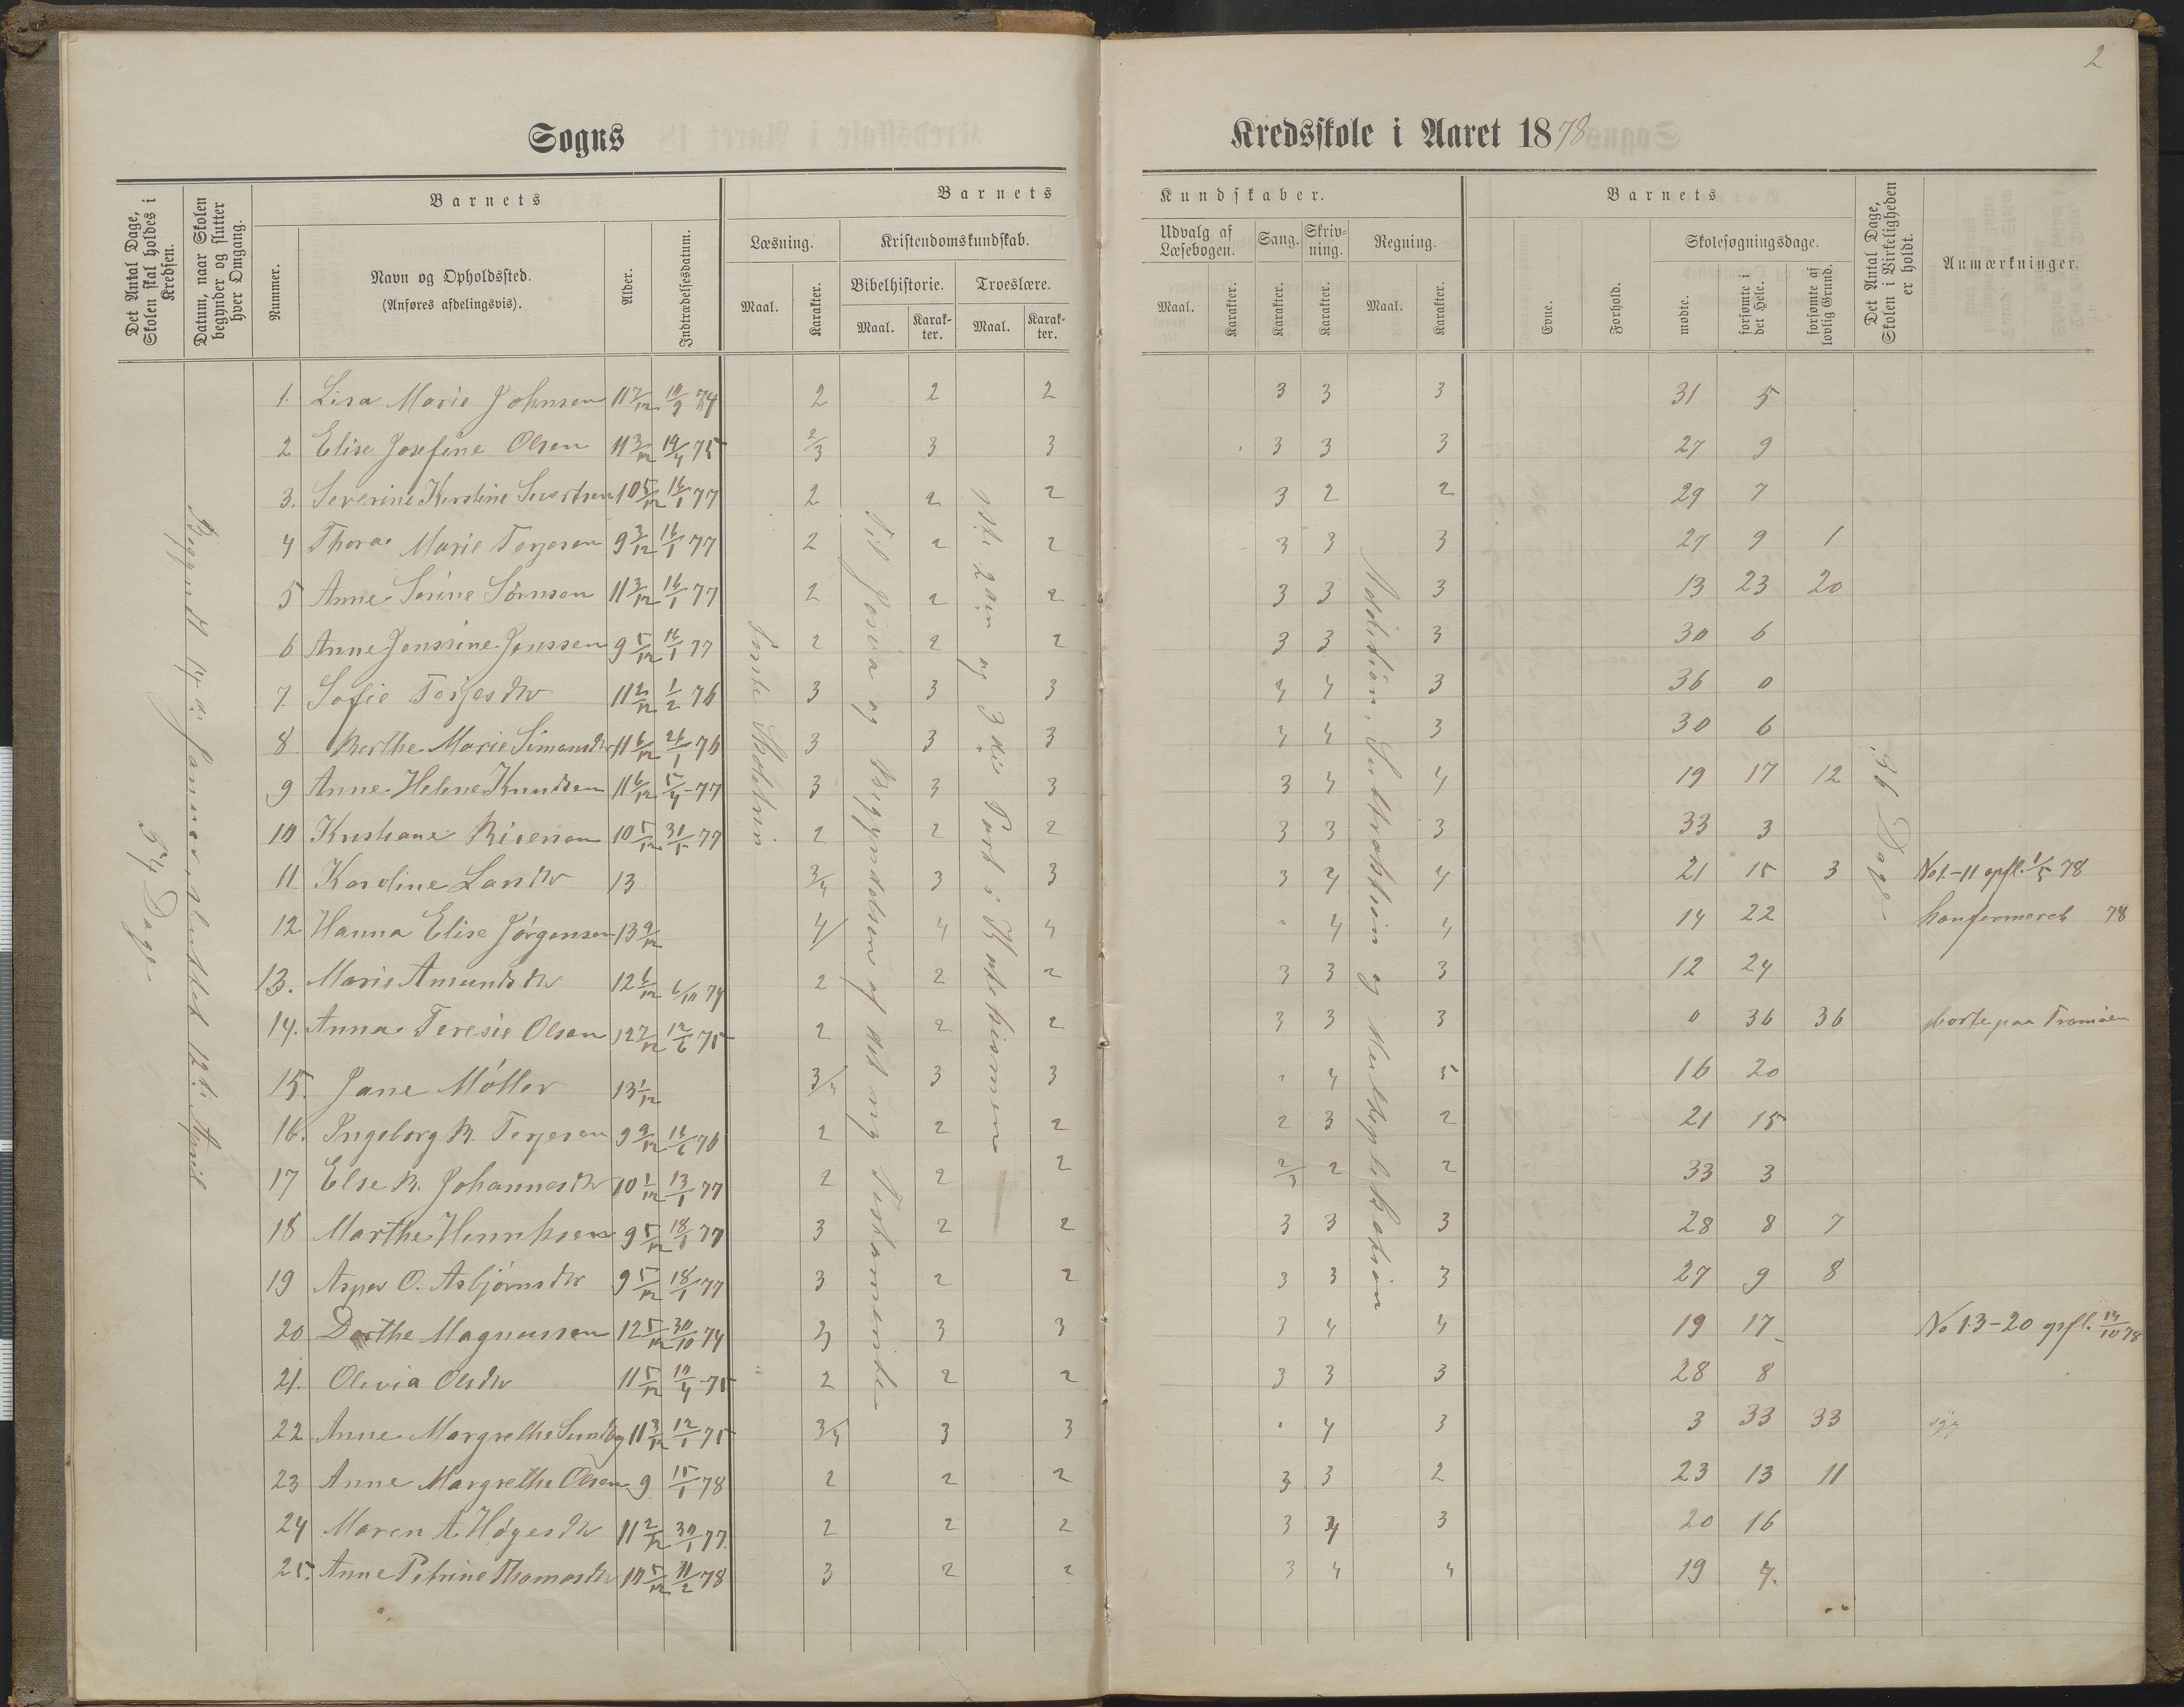 2
Sogns
Kredsskole i Aaret 1878
Det Antal Dage, Skolen skal holdes i Kredsen.
Datum, naar Skolen begynder og slutter hver Omgang.
Barnets
Nummer.
Navn og Opholdssted.
(Anføres afdelingsvis).
Alder.
Indtrædelsesdatum.
Barnets
Læsning.
Maal.
Karakter.
Kristendomskundskab.
Bibelhistorie.
Maal.
Karakter.
Troeslære.
Maal.
Karakter.
Kundskaber.
Udvalg af Læsebogen.
Maal.
Karakter.
Sang.
Karakter.
Skrivning.
Karakter.
Regning.
Maal.
Karakter.
Barnets
Evne.
Forhold.
Skolesøgningsdage.
mødte.
forsømte i det Hele.
forsømte af lovlig Grund.
Det Antal Dage, Skolen i Virkeligheden er holdt.
Anmærkninger.
54 Dage
Begyndt 14de Januar, sluttet 12te April
Til Josva og Begyndelsen af det ny Testamente
1ste 2den og 3die Part i Katekismen
Addition, Subtraktion og Multiplikation
36 Dage
1. Lisa Marie Johnsen 11 7/12 10/9 74 2 2 2 3 3 3 31 5
2 Elise Josefine Olsen 11 3/12 19/4 75 2/3 3 3 3 3 3 27 9
3. Severine Kirstine Sivertsen 10 5/12 16/1 77 2 2 2 3 2 2 29 7
4 Thora Marie Terjesen 9 3/12 16/1 77 2 2 2 3 3 3 27 9 1
5 Anne Serine Sørnsen 11 3/12 16/1 77 2 2 2 3 3 3 13 23 20
6 Anne Jenssine Jenssen 9 5/12 16/1 77 2 2 2 3 3 3 30 6
7. Sofie Terjesdtr 11 2/12 1/2 76 3 3 3 4 4 3 36 0
8. Berthe Marie Simonsdtr 11 6/12 26/1 76 3 3 3 4 4 3 30 6
9 Anne Helene Knudsen 11 6/12 5/4-77 3 3 3 3 4 4 19 17 12
10 Kristiane Reiersen 10 5/12 31/5 77 2 2 2 3 3 3 33 3
11. Karoline Larsdtr 13 3/4 3 3 3 4 4 21 15 3 No 1-11 opfl. 1/5 78
12 Hanna Elise Jørgensen 13 9/12 4 4 4 " 4 4 14 22 konfermeret 78
13. Marie Amundsdtr 12 6/12 6/10 74 2 2 2 3 3 3 12 24
14. Anna Teresie Olsen 12 7/12 12/6 75 2 2 2 3 3 3 0 36 36 borte paa Tromøen
15. Jane Møller 13 1/12 3/4 3 3 " 4 5 16 20
16. Ingeborg B. Terjesen 9 9/12 16/6 76 2 2 2 2 3 2 21 15
17 Else B. Johannesdtr 10 1/12 13/1 77 2 2 2 2/3 2 2 33 3
18 Marthe Henriksen 9 5/12 18/1 77 3 2 2 3 3 3 28 8 7
19 Asper O. Asbjørnsdtr 9 5/12 18/1 77 3 2 2 3 3 3 27 9 8
20 Dorthe Magnussen 12 5/12 30/10 74 3 3 3 3 4 4 19 17 No 13-20 opfl. 14/10 78
21. Olivia Olsdtr 11 5/12 10/4-75 2 2 2 3 3 3 28 8
22 Anne Margrethe Sundby 11 3/12 12/1 75 3/4 3 3 " 4 3 3 33 33 syg
23 Anne Margrethe Olsen 9 15/1 78 2 2 2 3 3 2 23 13 11
24 Maren A. Høgesdtr 11 2/12 30/1 77 2 2 2 3 4 3 20 16
25. Anne Petrine Thomasdtr 10 5/12 11/2 78 3 2 2 3 4 4 19 4.